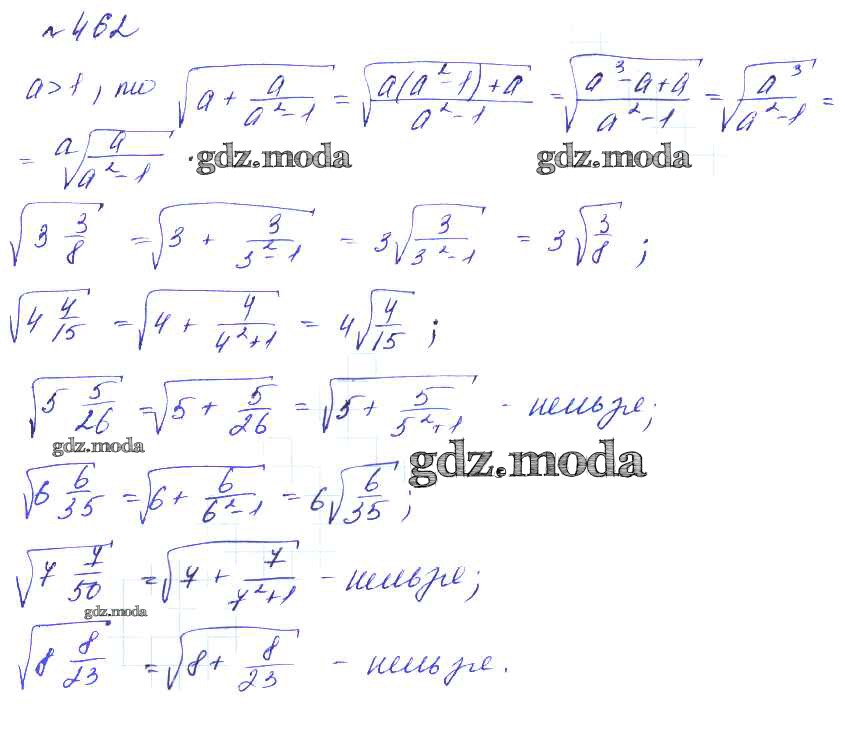 №462
a>1, то √(a + a/(a²-1)) = √((a(a²-1)+a)/(a²-1)) = √((a³-a+a)/(a²-1)) = √(a³/(a²-1)) =
= a√(a/(a²-1)) . gdz.moda gdz.moda
√(3 3/8) = √(3 + 3/(3²-1)) = 3√(3/(3²-1)) = 3√(3/8) ;
√(4 4/15) = √(4 + 4/(4²+1)) = 4√(4/15) ;
√(5 5/26) = √(5 + 5/26) = √(5 + 5/(5²+1)) - нельзя;
gdz.moda
gdz.moda
√(6 6/35) = √(6 + 6/(6²-1)) = 6√(6/35) ;
√(7 7/50) = √(7 + 7/(7²+1)) - нельзя;
gdz.moda
√(8 8/23) = √(8 + 8/23) - нельзя.